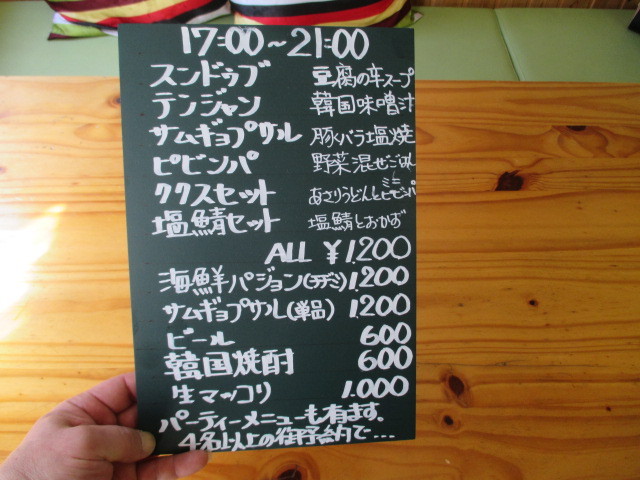 17:00~21:00
スンドゥブ 豆腐の辛スープ
テンジャン 韓国味噌汁
サムギョプサル 豚バラ塩焼
ピビンパ 野菜混ぜごはん
ククスセット あさりうどんとミニピビンパ
塩鯖セット 塩鯖とおかず
ALL ¥1,200
海鮮パジョン(チヂミ) 1,200
サムギョプサル(単品) 1,200
ビール 600
韓国焼酎 600
生マッコリ 1.000
パーティーメニューも有ます。
4名以上の御予約で...